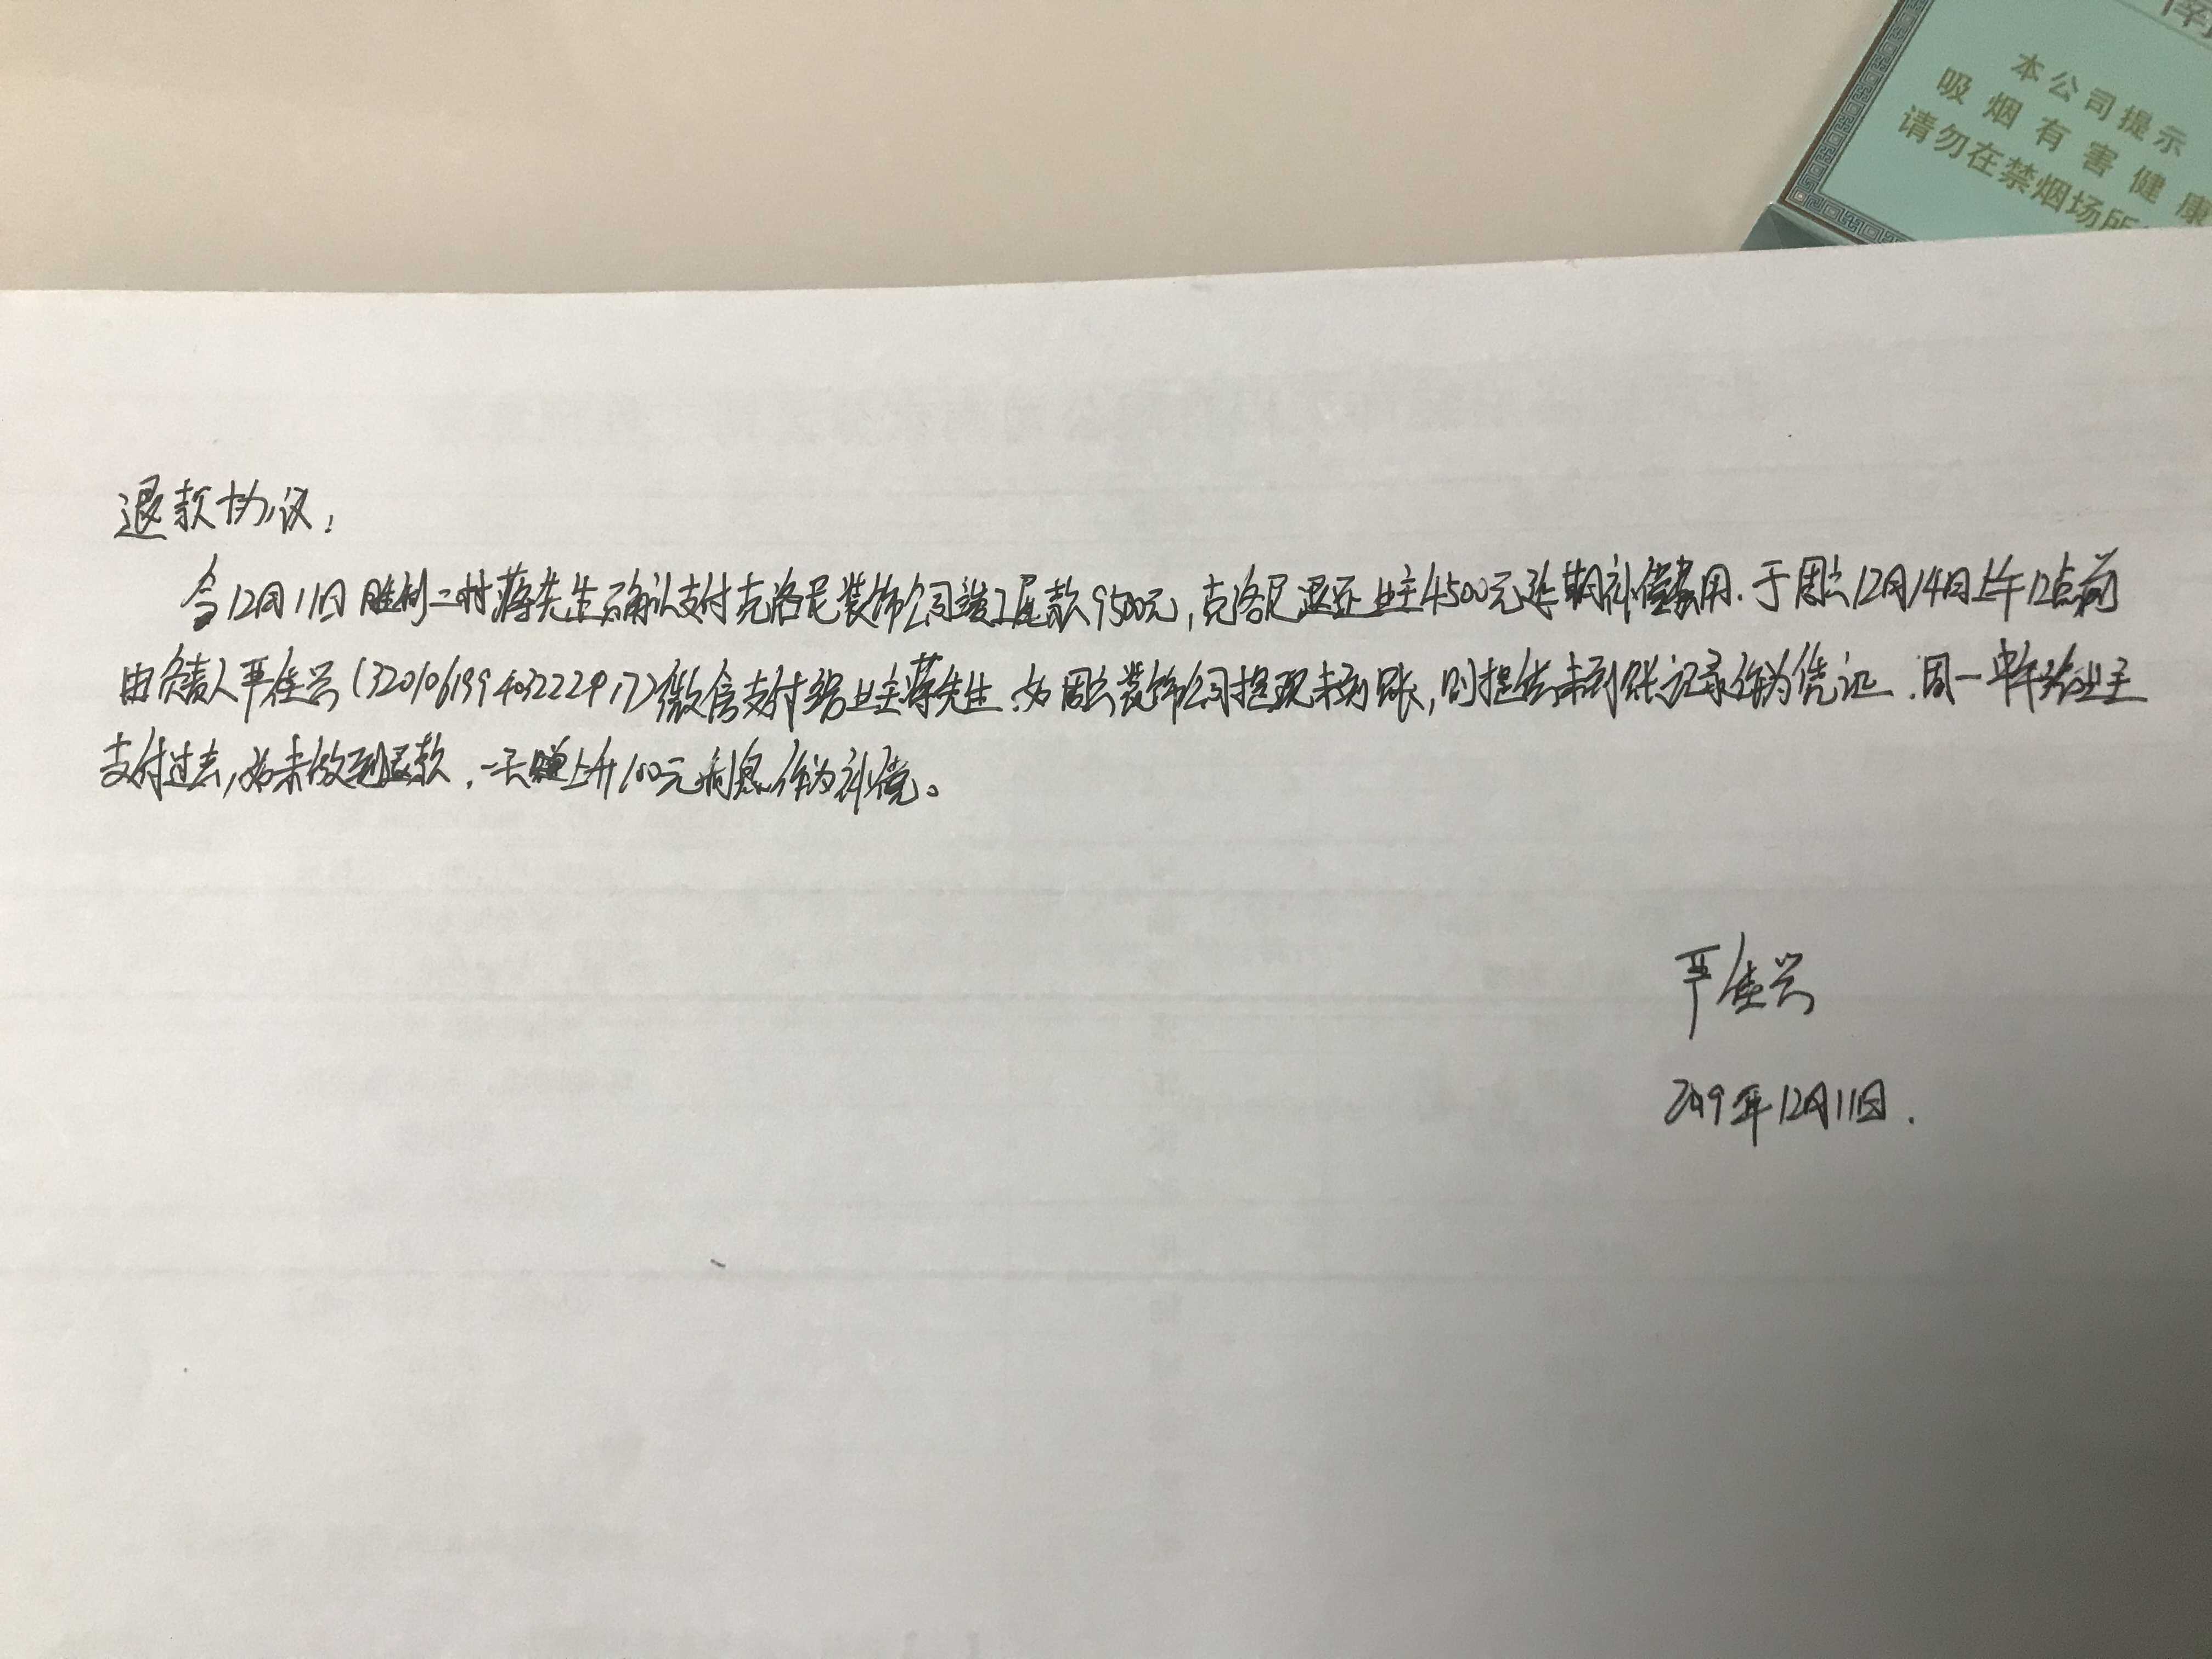 本公司提示
吸烟有害健康
请勿在禁烟场所
退款协议：
今12月11日胜利二村蒋先生确认支付克洛尼装饰公司竣工尾款9500元，克洛尼退还业主4500元延期补偿费用.于周六12月14日上午12点前
由负责人严佳兴(微信支付给业主蒋先生.如周六装饰公司提现未到账，则提供未到账记录作为凭证.周一中午给业主
支付过去，如未收到退款.一天上升100元利息作为补偿。
严佳兴
2019年12月11日.